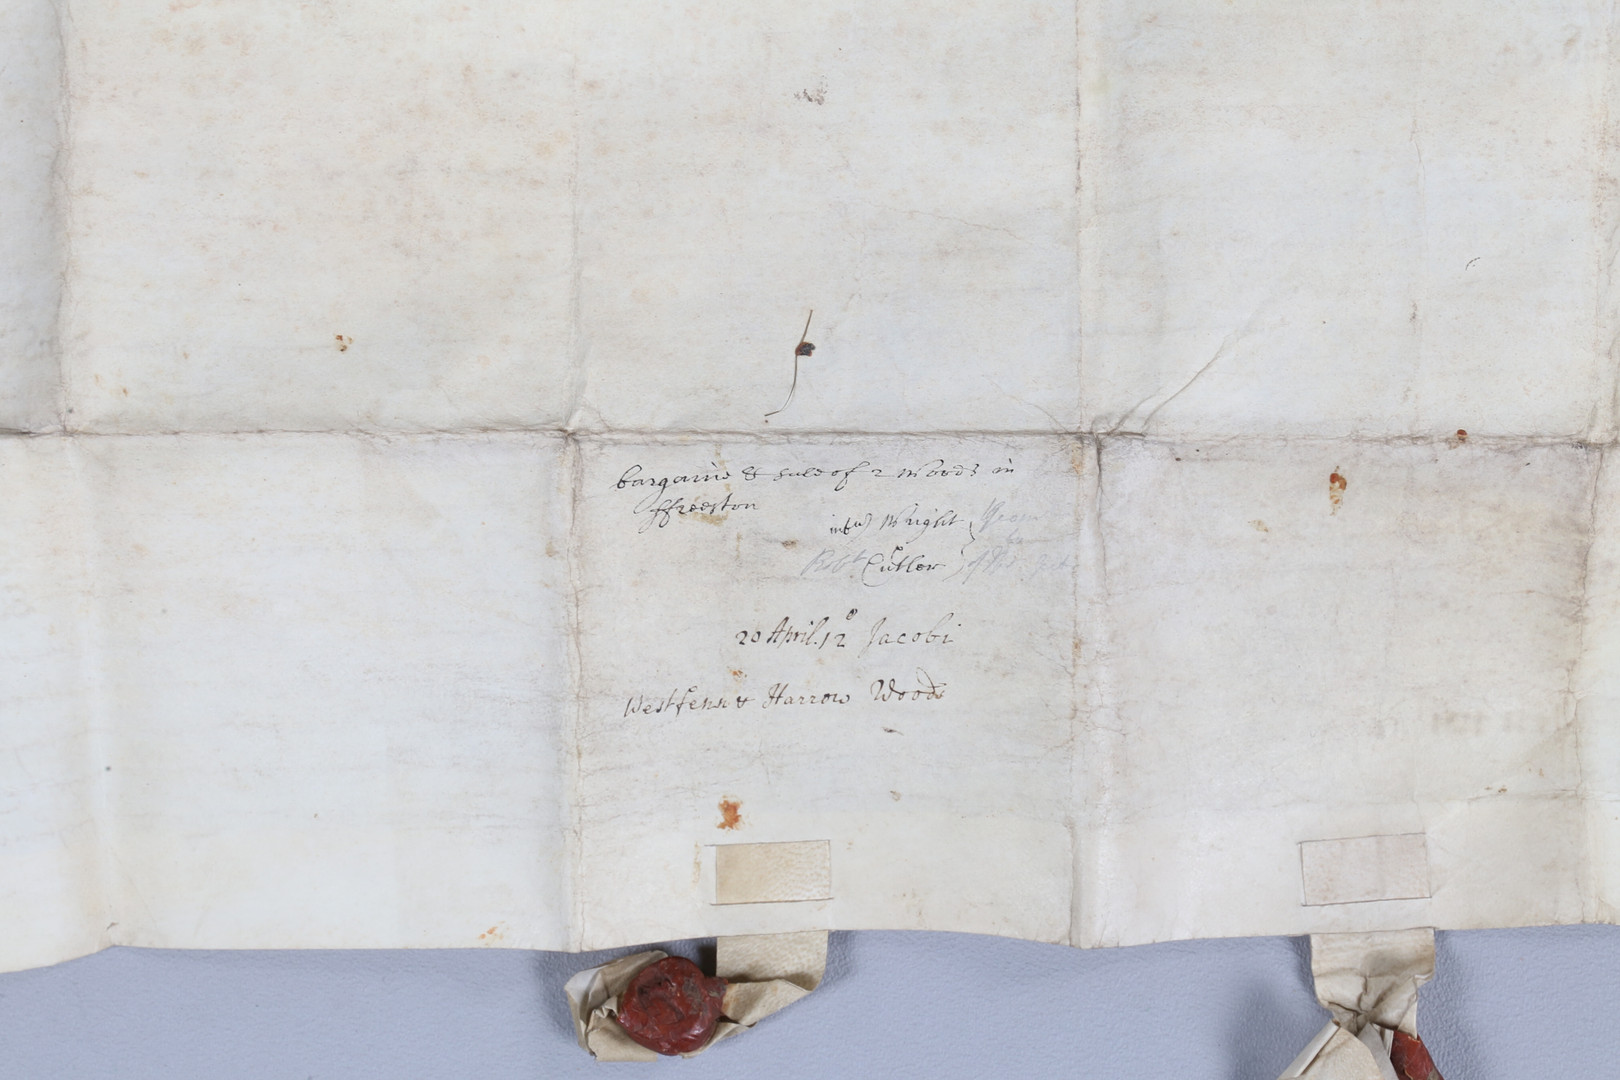 bargaine & sale of 2 Woods in
ffreeston
Wright
Robt Cutler
20 April. 12° Jacobi
Westfenn & Harrow Woods